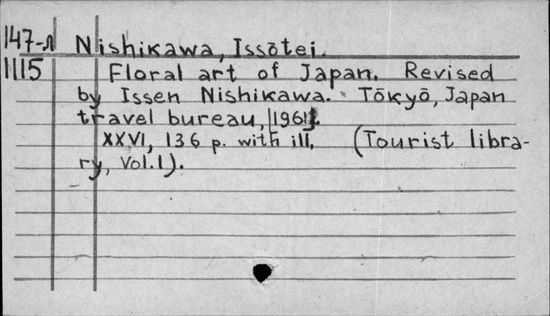 147-Л Nishikawa, Issōtei.
1115 Floral art of Japan. Revised
by Issen Nishikawa. Tōkyō, Japan
travel bureau, [1961].
XXVI, 136 p. with ill. (Tourist libra-
ry, Vol.1).